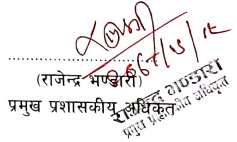 २०६८/५/१८
(राजेन्द्र भण्डारी)
प्रमुख प्रशासकीय अधिकृत
राजेन्द्र भण्डारी
प्रमुख प्रशासकीय अधिकृत